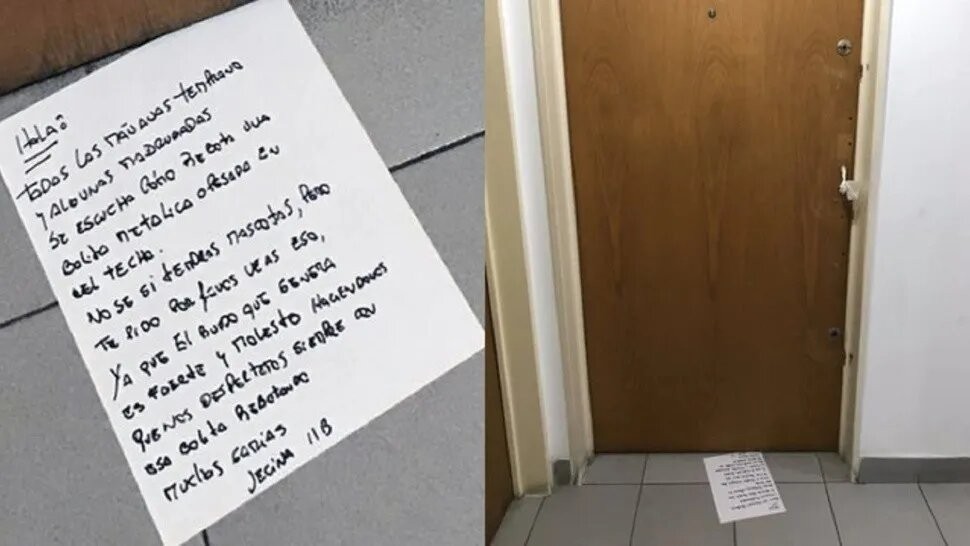 Hola!
TODAS LAS MAÑANAS TEMPRANO
Y ALGUNAS MADRUGADAS
SE ESCUCHA COMO REBOTA UNA
BOLITA METALICA O PESADA EN
EL TECHO.
NO SE SI TENDRAS MASCOTAS, PERO
TE PIDO POR FAVOR VEAS ESO,
YA QUE EL RUIDO QUE GENERA
ES FUERTE Y MOLESTO HACIENDONOS
QUE NOS DESPERTEMOS SIEMPRE CON
ESA BOLITA REBOTANDO
MUCHAS GRACIAS
VECINA 11B